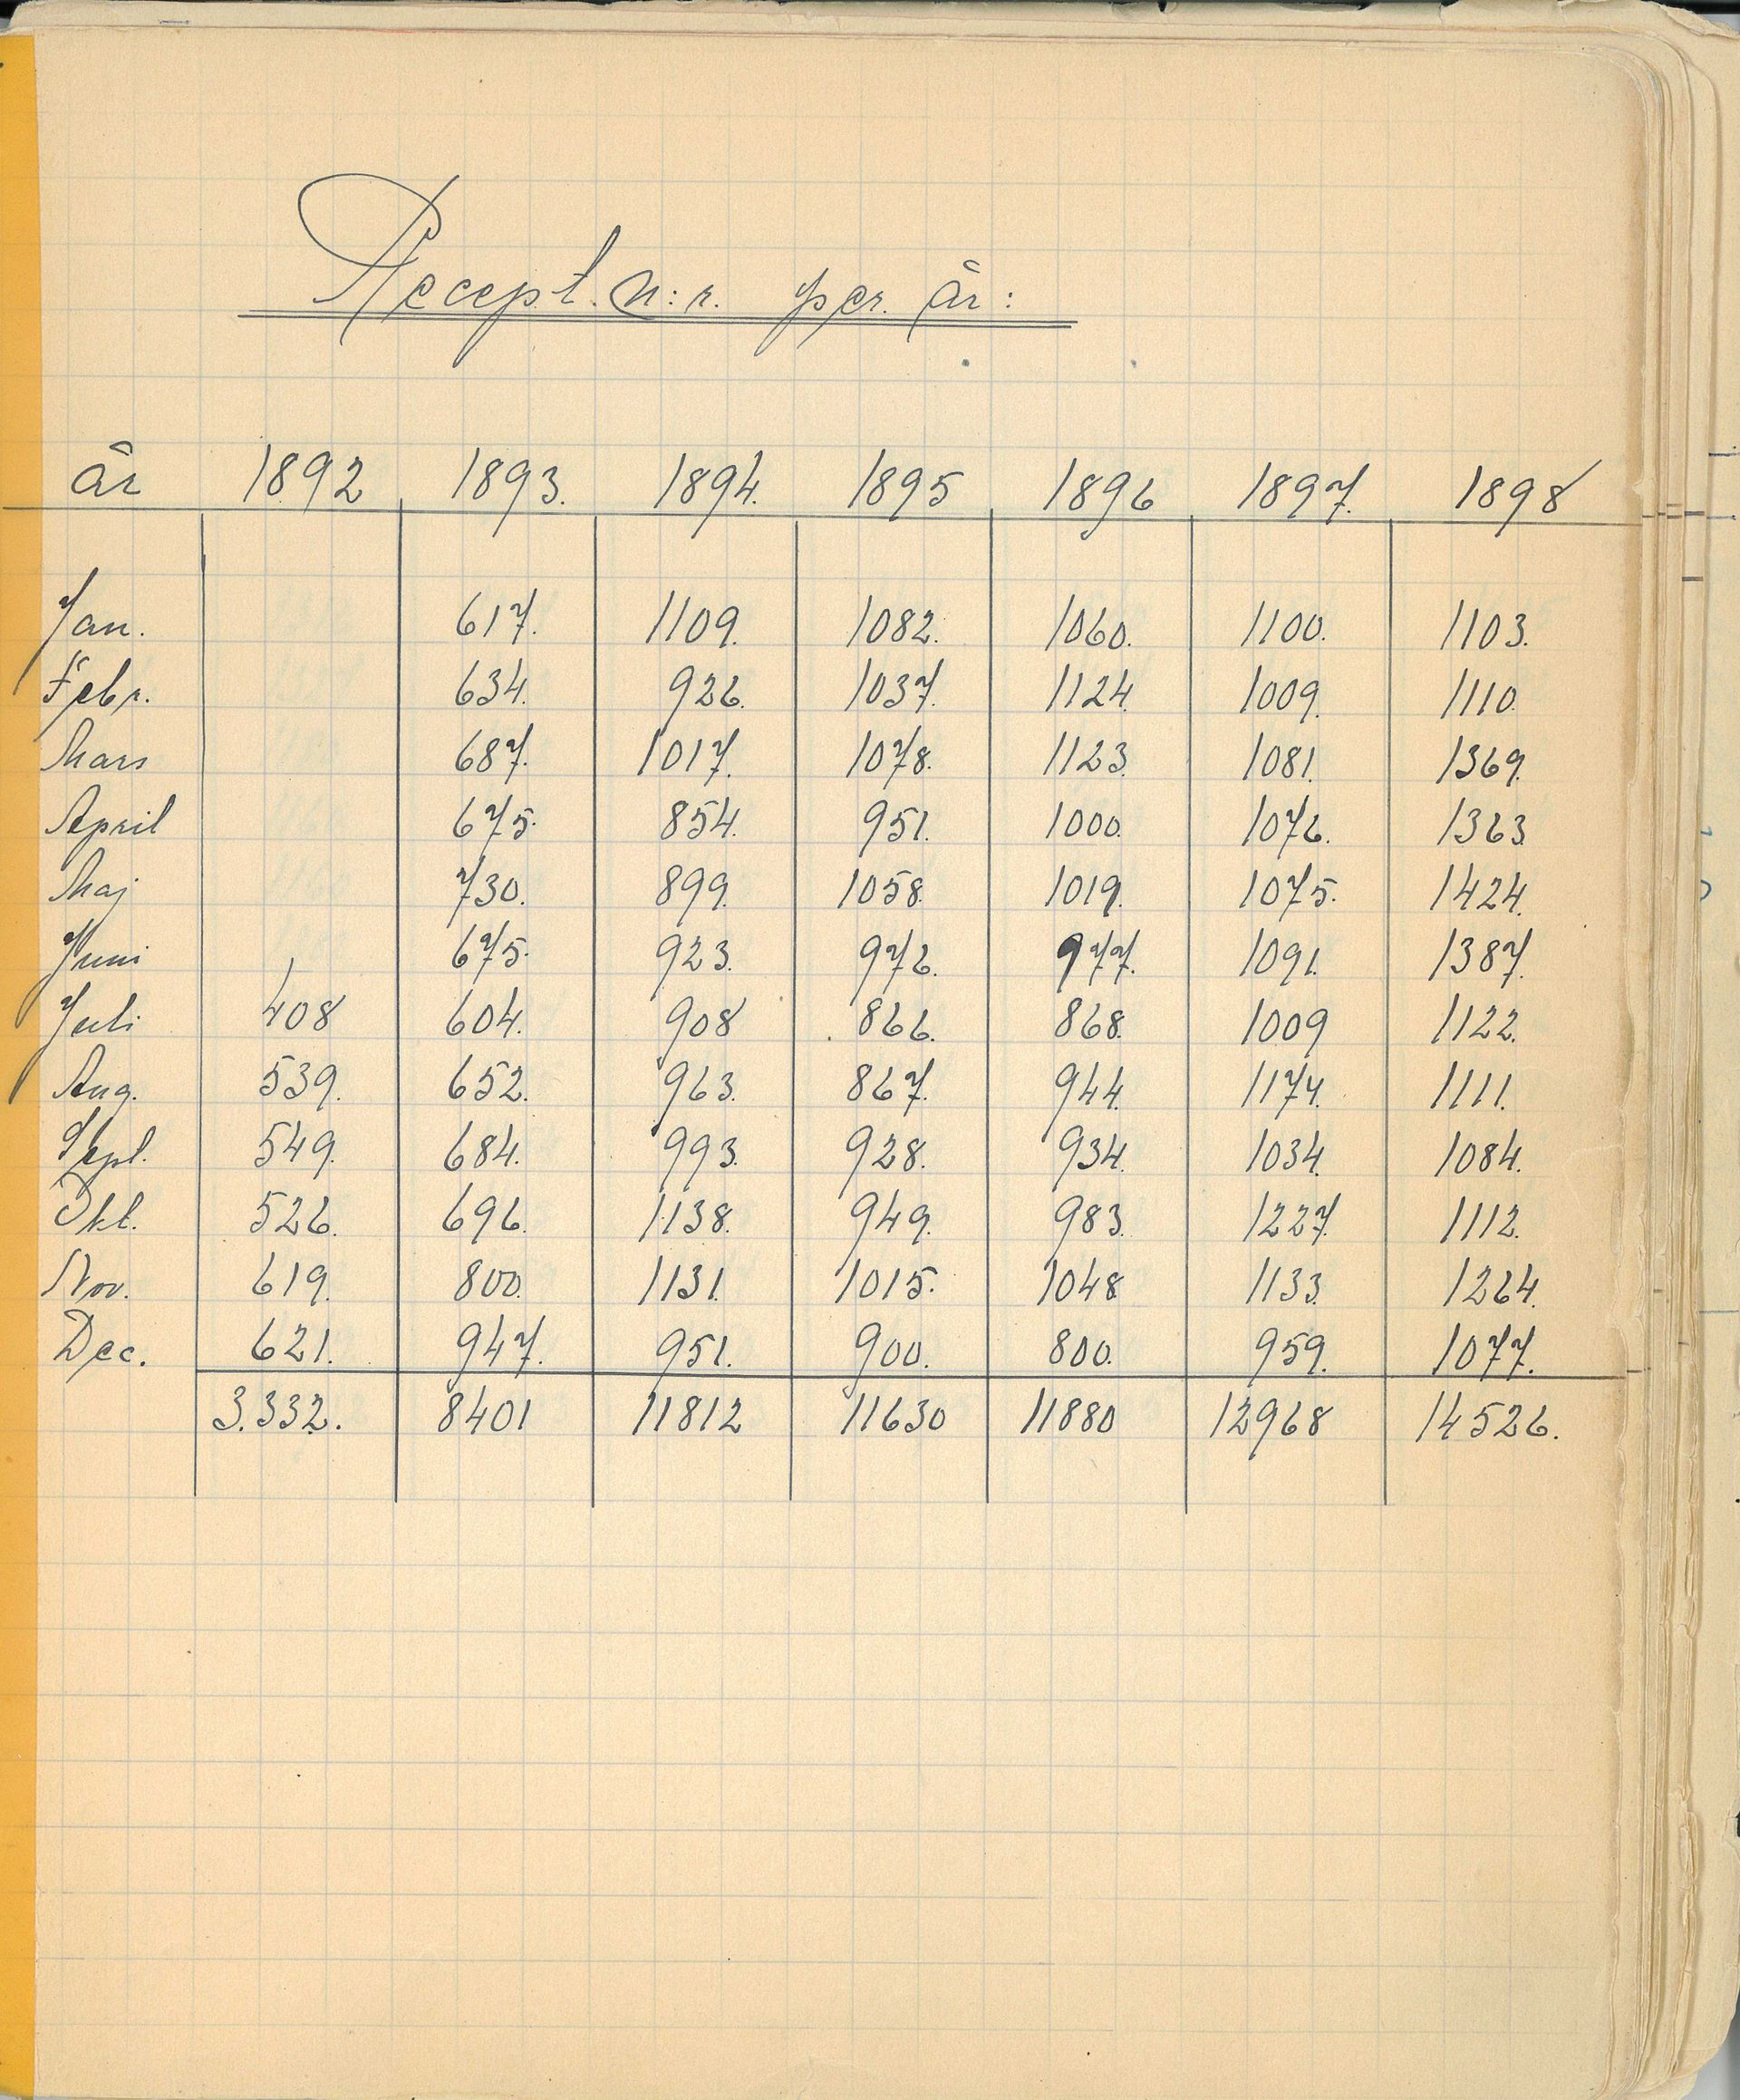 Recept. n:r. per. år:
år 1892 1893. 1894. 1895 1896 1897. 1898
Jan. 617. 1109. 1082. 1060. 1100. 1103.
Febr. 634. 926. 1037. 1124. 1009. 1110.
Mars 687. 1017. 1078. 1123. 1081. 1369.
April 675. 854. 951. 1000. 1076. 1363.
Maj 730. 899. 1058. 1019. 1075. 1424.
Juni 675. 923. 976. 977. 1091. 1387.
Juli 408 604. 908 866. 868. 1009 1122.
Aug. 539. 652. 963. 867. 944. 1174. 1111.
Sept. 549. 684. 993. 928. 934. 1034. 1084.
Okt. 526. 696. 1138. 949. 983. 1227. 1112.
Nov. 619. 800. 1131. 1015. 1048 1133. 1264.
Dec. 621. 947. 951. 900. 800. 959. 1077.
3.332. 8401 11812 11630 11880 12968 14526.